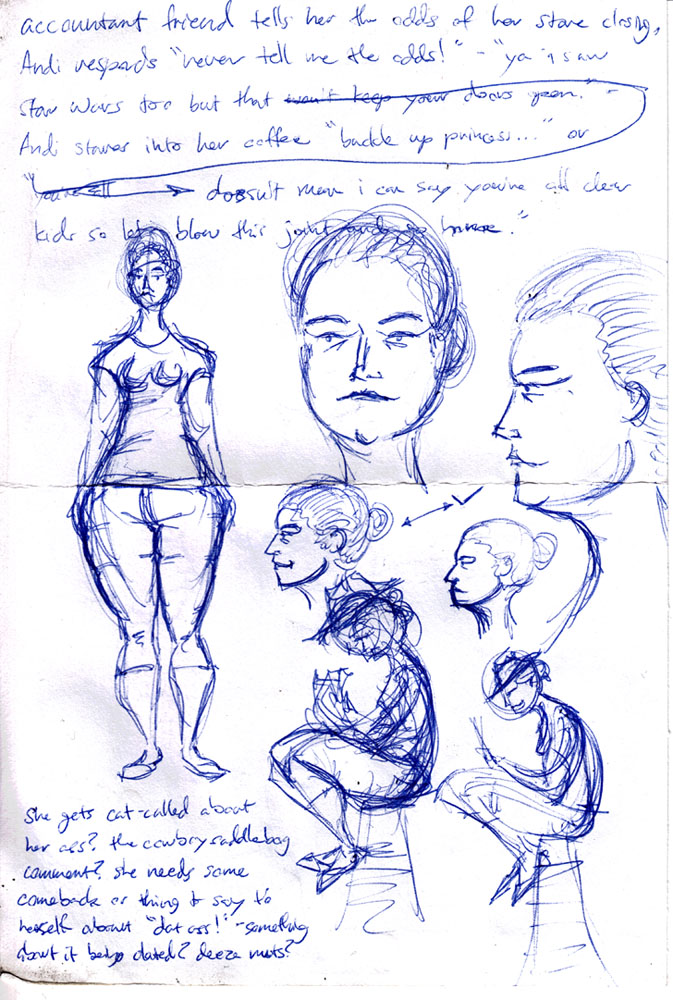 accountant friend tells her the odds of her store closing,
Andi responds "never tell me the odds!" - "ya i saw
star wars too but that won't keep your doors open." -
Andi stares into her coffee "buckle up princess..." or
"you're all doesn't mean i can say you're all clear
kids so let's blow this joint and go home."
she gets cat-called about
her ass? the cowboy saddlebag
comment? she needs some
comeback or thing to say to
herself about "dat ass!" - something
about it being dated? deeze nuts?